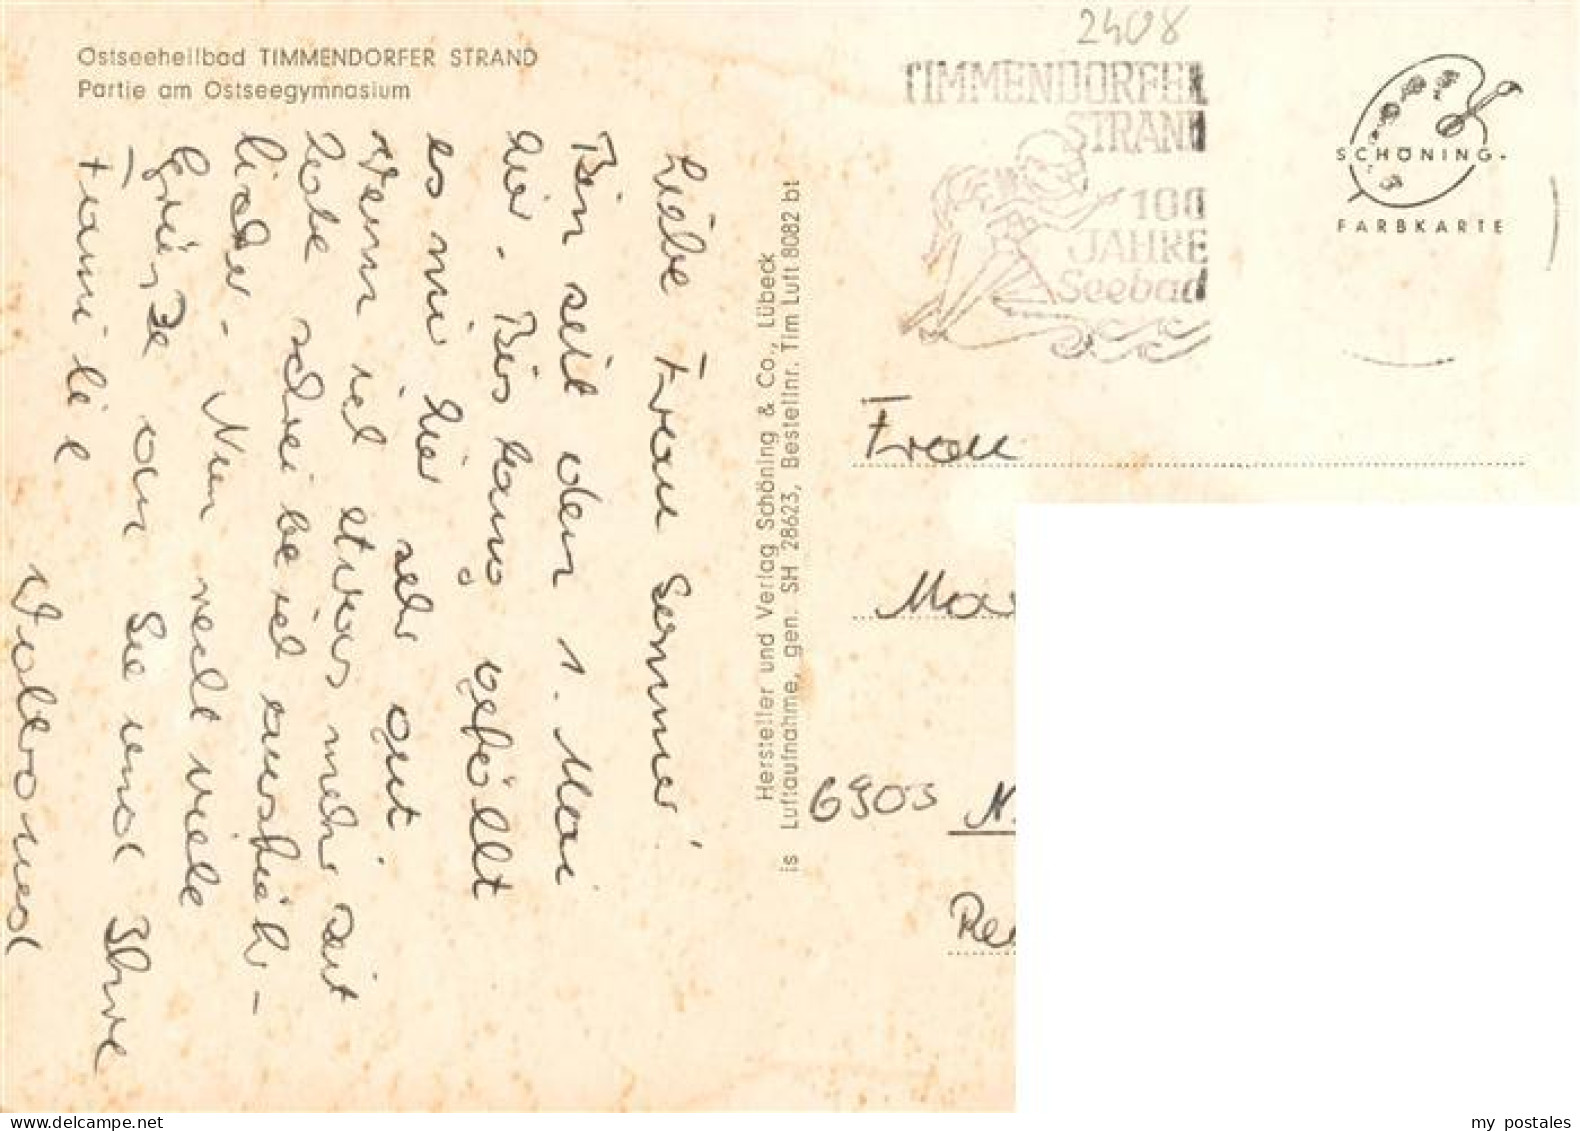 Ostseeheilbad TIMMENDORFER STRAND
Partie am Ostseegymnasium
2408
TIMMENDORFER
STRAND
100
JAHRE
Seebad
SCHÖNING-
FARBKARTE
Liebe Frau
Bin seit dem 1. Mai
hier. Bis lang gefällt
es mir hier sehr gut
Wenn ich etwas mehr Zeit
habe schreibe ich ausführ-
licher. Nun recht viele
Grüße an Sie und Ihre
Familie
Hersteller und Verlag Schöning & Co., Lübeck
is Luftaufnahme, gen. SH 28623, Bestellnr. Tim Luft 8082 bt
Frau
6903
my postales